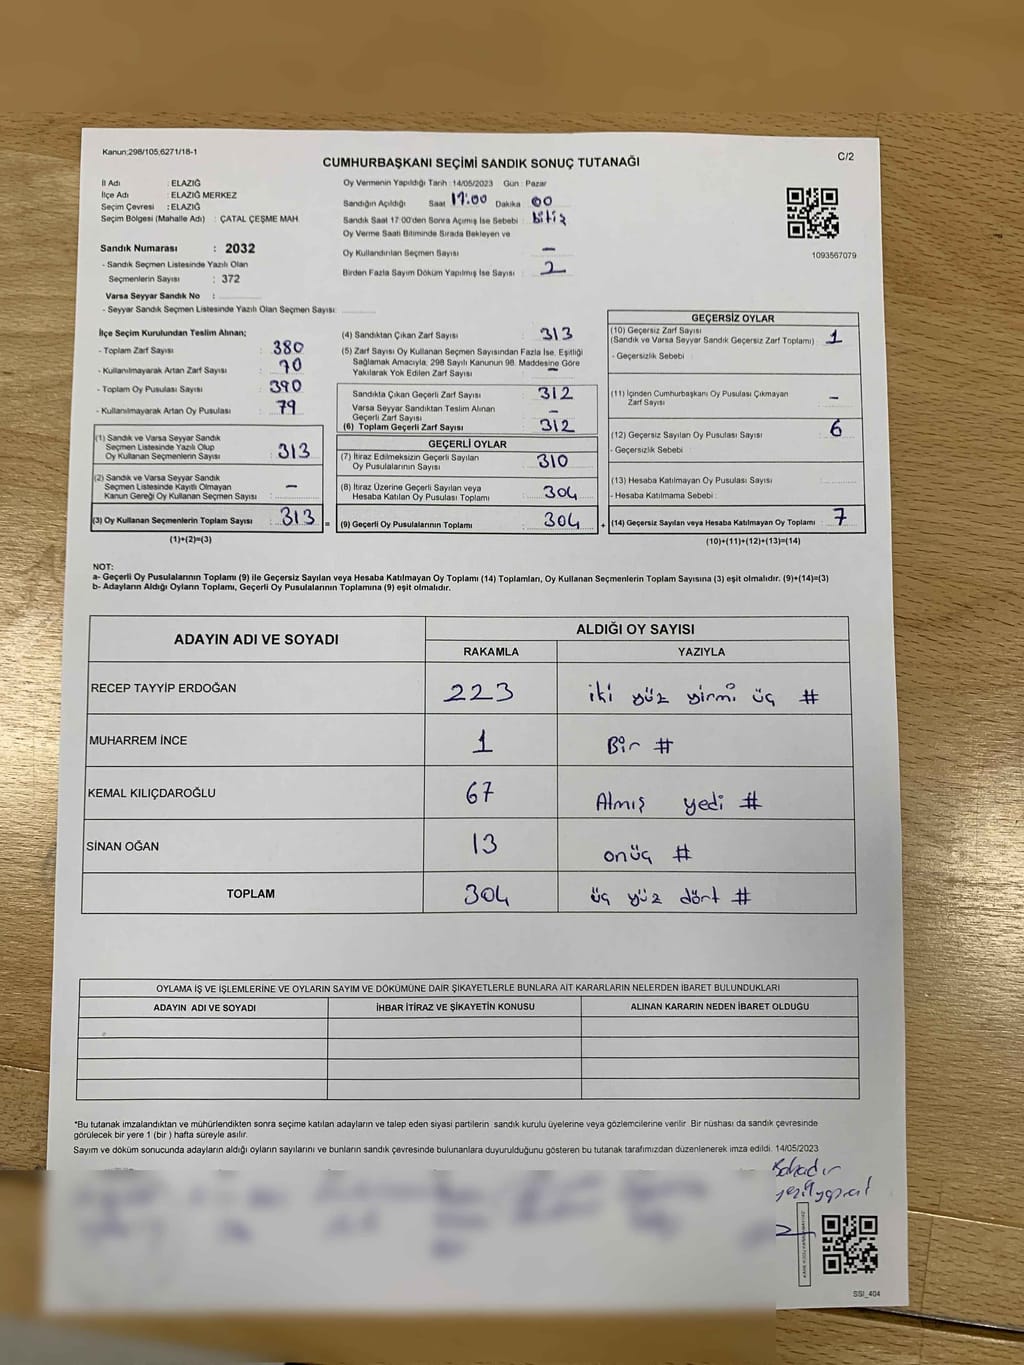 Kanun;298/105,6271/18-1
CUMHURBAŞKANI SEÇİMİ SANDIK SONUÇ TUTANAĞI
C/2
İl Adı : ELAZIĞ
İlçe Adı : ELAZIĞ MERKEZ
Seçim Çevresi : ELAZIĞ
Seçim Bölgesi (Mahalle Adı) : ÇATAL ÇEŞME MAH.
Sandık Numarası : 2032
- Sandık Seçmen Listesinde Yazılı Olan
Seçmenlerin Sayısı : 372
Varsa Seyyar Sandık No :
- Seyyar Sandık Seçmen Listesinde Yazılı Olan Seçmen Sayısı:
Oy Vermenin Yapıldığı Tarih :14/05/2023 Gün : Pazar
Sandığın Açıldığı Saat 17:00 Dakika 00
Sandık Saat 17:00'den Sonra Açımış İse Sebebi : bitiş
Oy Verme Saati Bitiminde Sırada Bekleyen ve
Oy Kullandırılan Seçmen Sayısı : –
Birden Fazla Sayım Döküm Yapılmış İse Sayısı : 2
1093567079
İlçe Seçim Kurulundan Teslim Alınan;
- Toplam Zarf Sayısı : 380
- Kullanılmayarak Artan Zarf Sayısı : 70
- Toplam Oy Pusulası Sayısı : 390
- Kullanılmayarak Artan Oy Pusulası : 79
(1) Sandık ve Varsa Seyyar Sandık
Seçmen Listesinde Yazılı Olup
Oy Kullanan Seçmenlerin Sayısı : 313
(2) Sandık ve Varsa Seyyar Sandık
Seçmen Listesinde Kayıtlı Olmayan
Kanun Gereği Oy Kullanan Seçmen Sayısı : –
(3) Oy Kullanan Seçmenlerin Toplam Sayısı : 313
(1)+(2)=(3)
=
(4) Sandıktan Çıkan Zarf Sayısı : 313
(5) Zarf Sayısı Oy Kullanan Seçmen Sayısından Fazla İse, Eşitliği
Sağlamak Amacıyla, 298 Sayılı Kanunun 98. Maddesine Göre
Yakılarak Yok Edilen Zarf Sayısı : –
Sandıkta Çıkan Geçerli Zarf Sayısı : 312
Varsa Seyyar Sandıktan Teslim Alınan
Geçerli Zarf Sayısı : –
(6) Toplam Geçerli Zarf Sayısı : 312
GEÇERLİ OYLAR
(7) İtiraz Edilmeksizin Geçerli Sayılan
Oy Pusulalarının Sayısı : 310
(8) İtiraz Üzerine Geçerli Sayılan veya
Hesaba Katılan Oy Pusulası Toplamı : 304
(9) Geçerli Oy Pusulalarının Toplamı : 304
+
GEÇERSİZ OYLAR
(10) Geçersiz Zarf Sayısı
(Sandık ve Varsa Seyyar Sandık Geçersiz Zarf Toplamı) : 1
- Geçersizlik Sebebi :
(11) İçinden Cumhurbaşkanı Oy Pusulası Çıkmayan
Zarf Sayısı : –
(12) Geçersiz Sayılan Oy Pusulası Sayısı : 6
- Geçersizlik Sebebi :
(13) Hesaba Katılmayan Oy Pusulası Sayısı :
- Hesaba Katılmama Sebebi :
(14) Geçersiz Sayılan veya Hesaba Katılmayan Oy Toplamı : 7
(10)+(11)+(12)+(13)=(14)
NOT:
a- Geçerli Oy Pusulalarının Toplamı (9) ile Geçersiz Sayılan veya Hesaba Katılmayan Oy Toplamı (14) Toplamları, Oy Kullanan Seçmenlerin Toplam Sayısına (3) eşit olmalıdır. (9)+(14)=(3)
b- Adayların Aldığı Oyların Toplamı, Geçerli Oy Pusulalarının Toplamına (9) eşit olmalıdır.
ADAYIN ADI VE SOYADI
ALDIĞI OY SAYISI
RAKAMLA YAZIYLA
RECEP TAYYİP ERDOĞAN 223 iki yüz yirmi üç #
MUHARREM İNCE 1 Bir #
KEMAL KILIÇDAROĞLU 67 Almış yedi #
SİNAN OĞAN 13 onüç #
TOPLAM 304 üç yüz dört #
OYLAMA İŞ VE İŞLEMLERİNE VE OYLARIN SAYIM VE DÖKÜMÜNE DAİR ŞİKAYETLERLE BUNLARA AİT KARARLARIN NELERDEN İBARET BULUNDUKLARI
ADAYIN ADI VE SOYADI İHBAR İTİRAZ VE ŞİKAYETİN KONUSU ALINAN KARARIN NEDEN İBARET OLDUĞU
*Bu tutanak imzalandıktan ve mühürlendikten sonra seçime katılan adayların ve talep eden siyasi partilerin sandık kurulu üyelerine veya gözlemcilerine verilir. Bir nüshası da sandık çevresinde
görülecek bir yere 1 (bir ) hafta süreyle asılır.
Sayım ve döküm sonucunda adayların aldığı oyların sayılarını ve bunların sandık çevresinde bulunanlara duyurulduğunu gösteren bu tutanak tarafımızdan düzenlenerek imza edildi. 14/05/2023
Bahadır
SSI_404